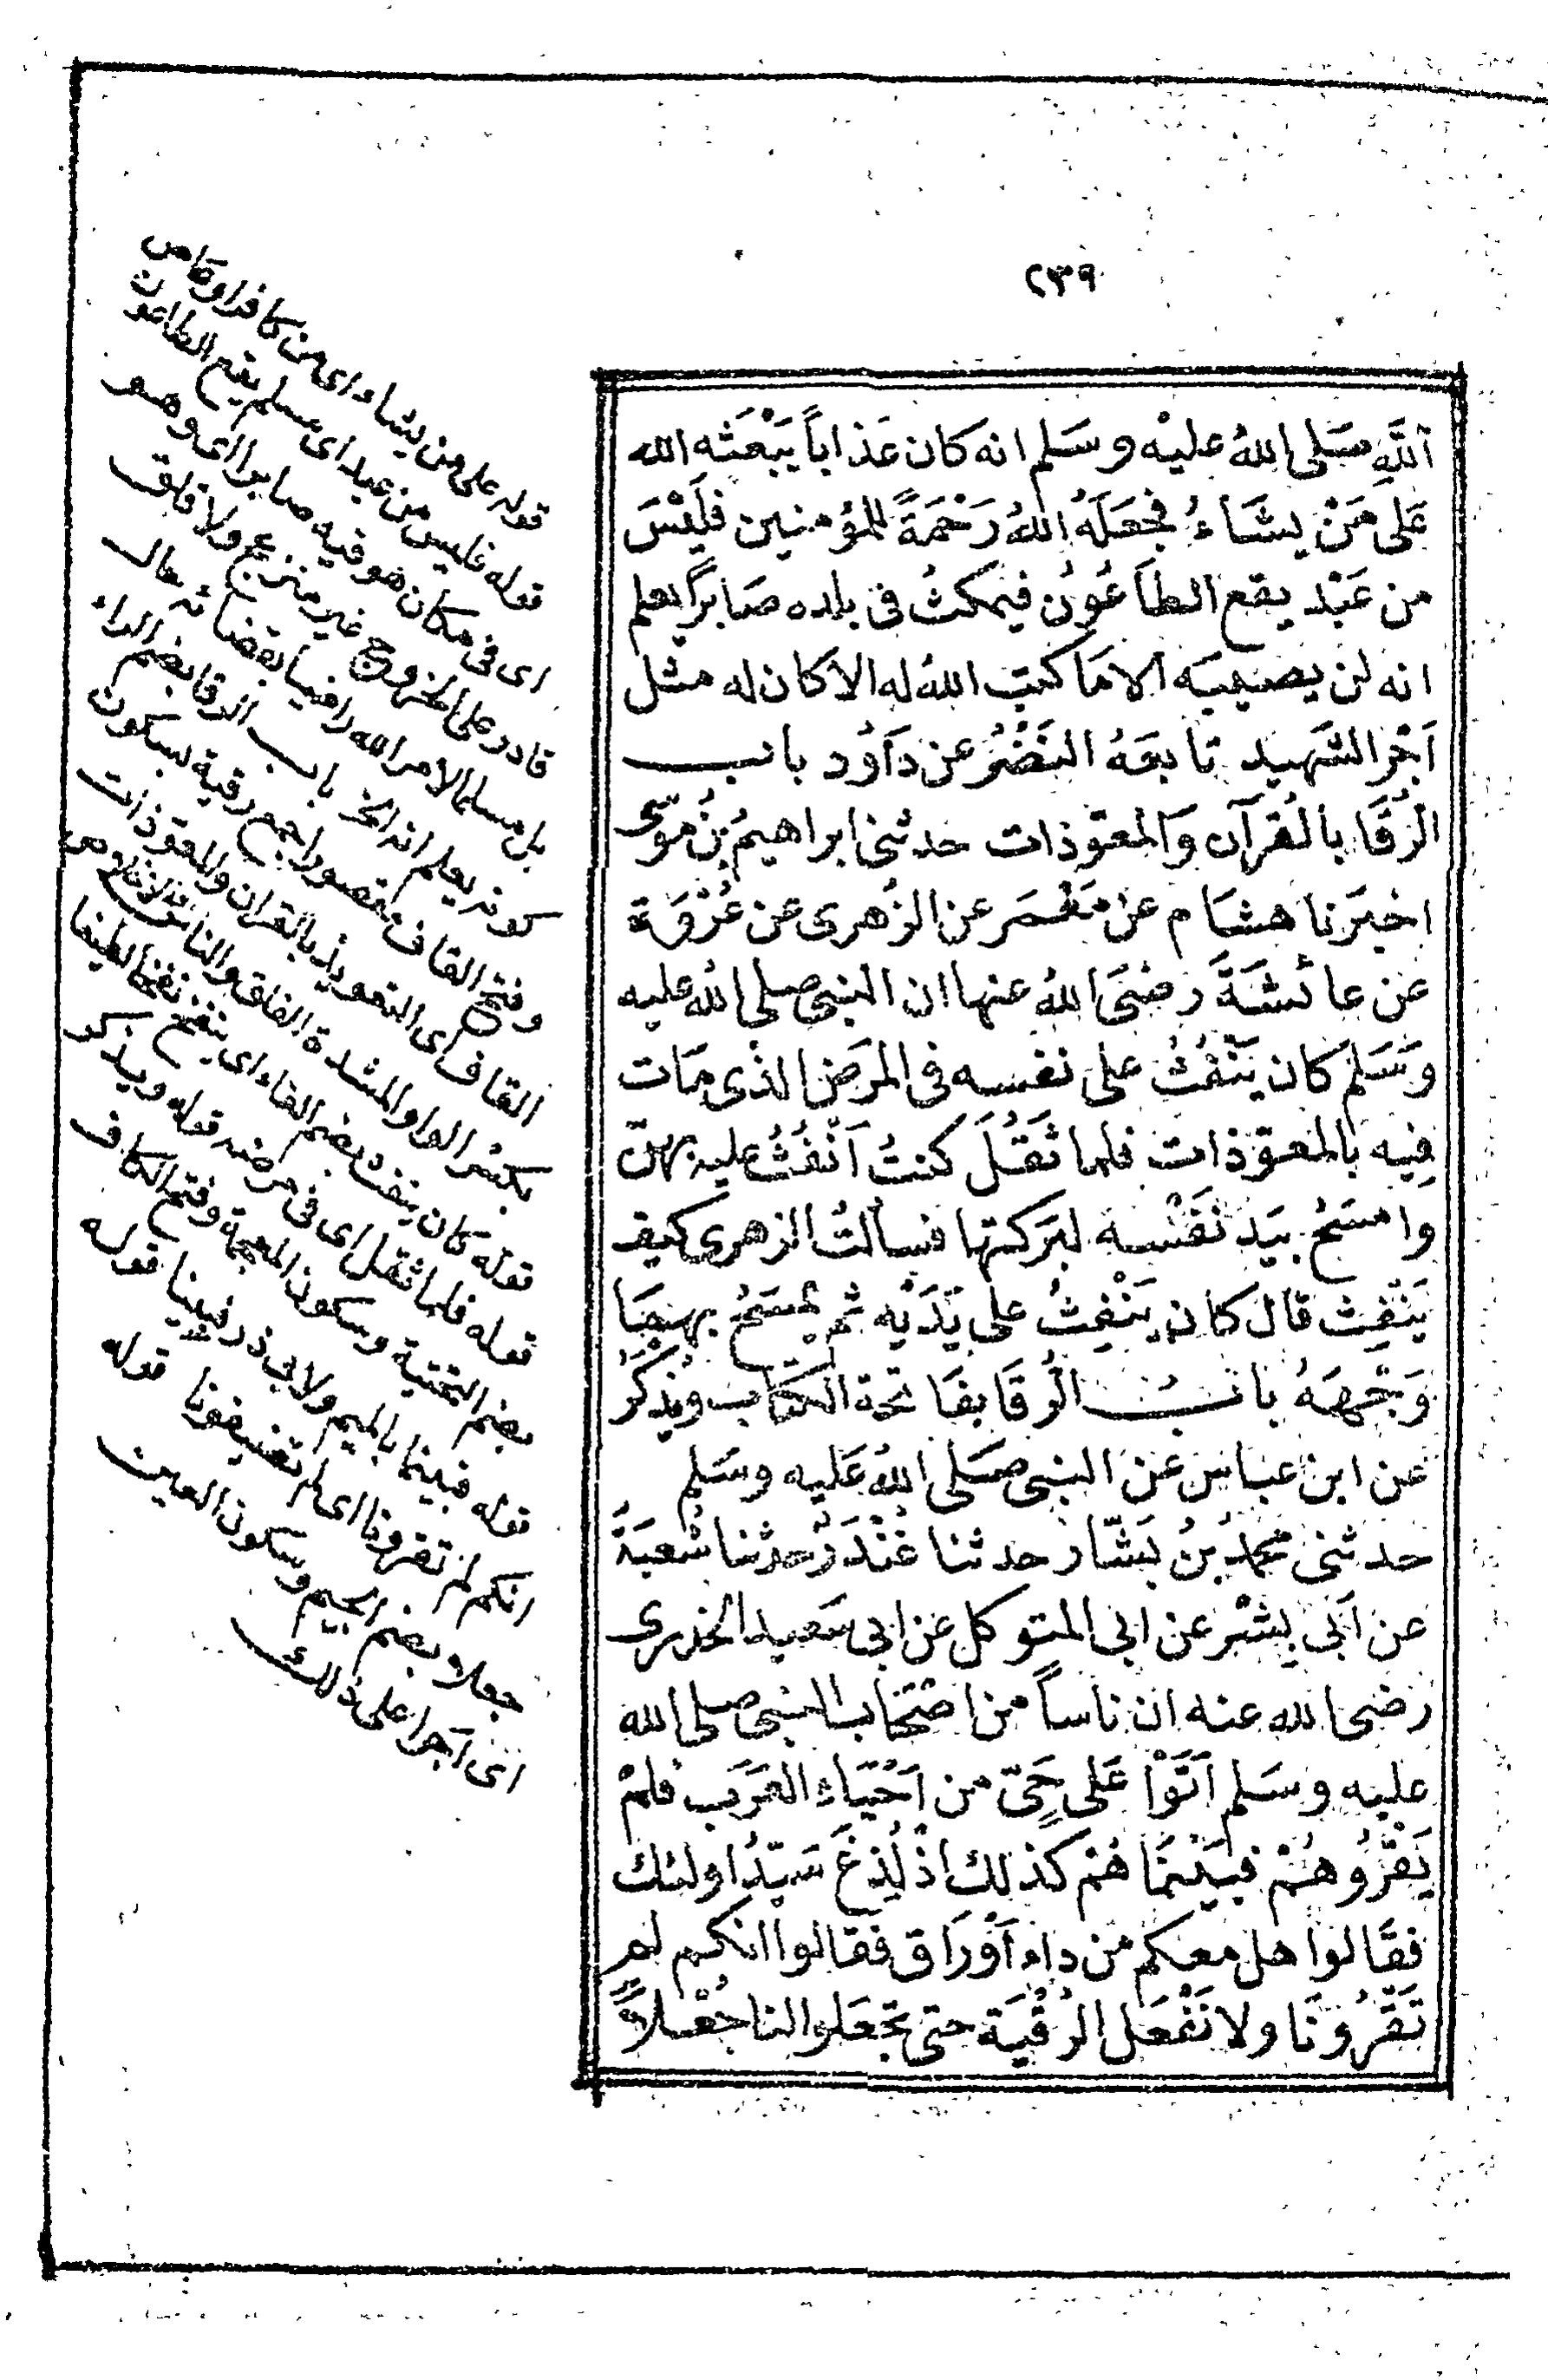 ٢٣٩
اللَّهِ صَلى اللهُ عليْه وسَلم انه كان عَذاباً يَبْعَثه الله
عَلى مَنْ يشَاءُ فجعَلَهُ اللهُ رَحْمَةً للمؤمنين فليْسَ
من عَبْد يقع الطاَعُونُ فيمكثُ فى بلده صَابراً يعلم
انه لن يصيبَه الا مَا كتبَ اللهُ له الا كان له مثل
اَجْر الشهيد تابعَهُ النَضْرُ عن دَاوُد باب
الرُقَا بالقُرآن وَالمعوّذات حدثنى ابراهيمُ بنُ موسَى
اخبَرَنا هشام عَن مَعْمَر عن الزُهرى عن عُرْوَة
عَن عائشَةَ رَضىَ اللهُ عنها ان النبى صلى اللهُ عليه
وَسَلم كان يَنْفُثُ على نفسه فى المرَض الذى مَات
فِيه بالمعوّذات فلما ثَقُلَ كنتُ اَنْفُثُ عليه بهنّ
وامسَحُ بيَد نَفْسه لبَركتها فسألتُ الزهرى كيف
يَنْفِث قال كان يَنْفِثُ على يَدَيْه ثم يمْسَحُ بهمَا
وَجْهَهُ بابُ الرُقَا بفَاتحة الكتاب ويُذكَرُ
عَن ابن عباس عَن النبى صَلى اللهُ عَليه وسَلم
حدثنى محمدُ بنُ بَشّار حدثنا غُنْدَرٌ حدثنا شُعبَةُ
عن اَبى بِشْر عن ابى المتوكل عَن ابى سَعيد الخدرى
رَضى الله عنه ان ناساً من اصْحَاب النبى صلى الله
عليه وسَلم اَتَوْا عَلى حَىّ من اَحْيَاء العَرَب فلمْ
يَقْرُوهُمْ فبَيْنمَا هُمْ كذلك اذ لُدِغَ سَيّدُ اولئك
فقَالوا هل معكم من دَاء اَوْ رَاق فقالوا انكم لم
تَقْرُونَا ولا نَفْعَل الرُقْيَة حتى تجْعَلوا لنا جُعْلاً
قوله على من يشاء اى من كافر او عاص
قوله فليس من عبد اى مسلم يقع الطاعون
اى فى مكان هو فيه صابرا اى وهو
قادر على الخروج غير منزعج ولا قلق
بل مسلما لامر الله راضيا بقضائه حال
كونه يعلم انه الخ باب الرقا بضم الراء
وفتح القاف مقصور اجمع رقية بسكون
القاف اى التعويذ بالقران والمعوذات
بكسر الواو المشددة الفلق والناس والاخلاص
قوله كان ينفث بضم الفاء اى ينفخ نفخا لطيفا
قوله فلما ثقل اى فى مرضه قوله ويذكر
بضم التحتية وسكون المعجمة وفتح الكاف
قوله فبينما بالميم ولابى ذر فبينا قوله
انكم لم تقرونا اى لم تضيفونا قوله
جعلا بضم الجيم وسكون العين
اى اجرا على ذلك